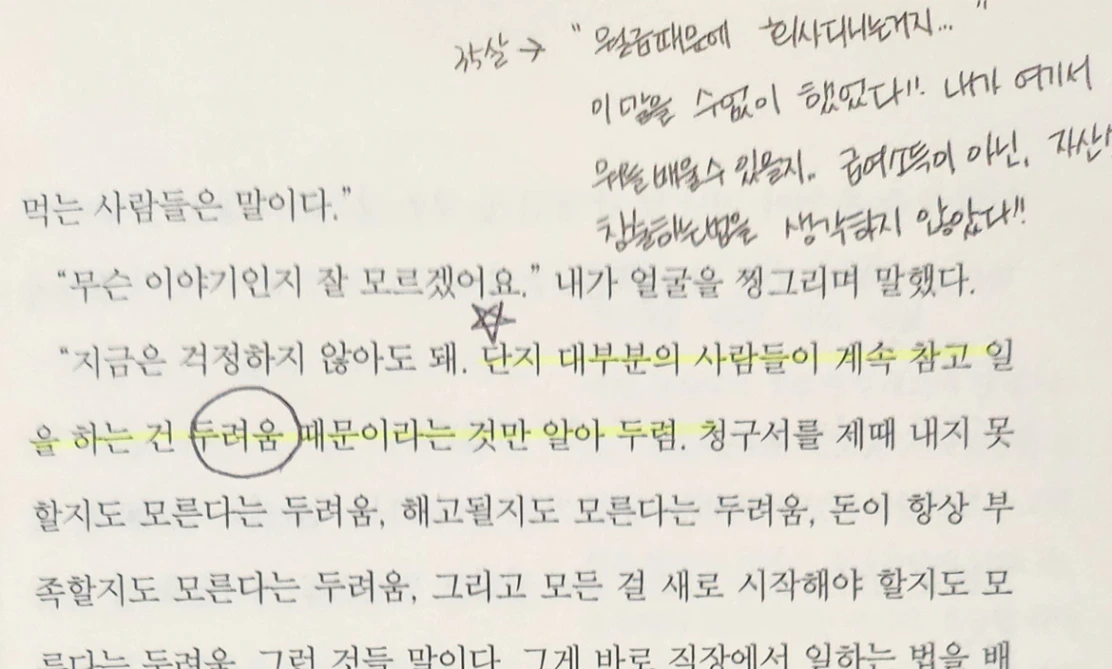 착살 → "월급때문에 회사다니는거지..."
이 말을 수없이 했었다!! 내가 여기서
뭐를 배울수 있을지.. 급여소득이 아닌, 자산
창출하는법을 생각하지 않았다!!
먹는 사람들은 말이다."
"무슨 이야기인지 잘 모르겠어요." 내가 얼굴을 찡그리며 말했다.
"지금은 걱정하지 않아도 돼. 단지 대부분의 사람들이 계속 참고 일
을 하는 건 두려움 때문이라는 것만 알아 두렴. 청구서를 제때 내지 못
할지도 모른다는 두려움, 해고될지도 모른다는 두려움, 돈이 항상 부
족할지도 모른다는 두려움, 그리고 모든 걸 새로 시작해야 할지도 모
른다는 두려움. 그런 것들 말이다. 그게 바로 직장에서 일하는 법을 배